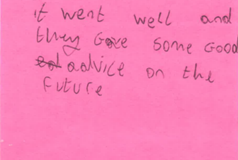 it went well and
they gave some good
advice on the
future